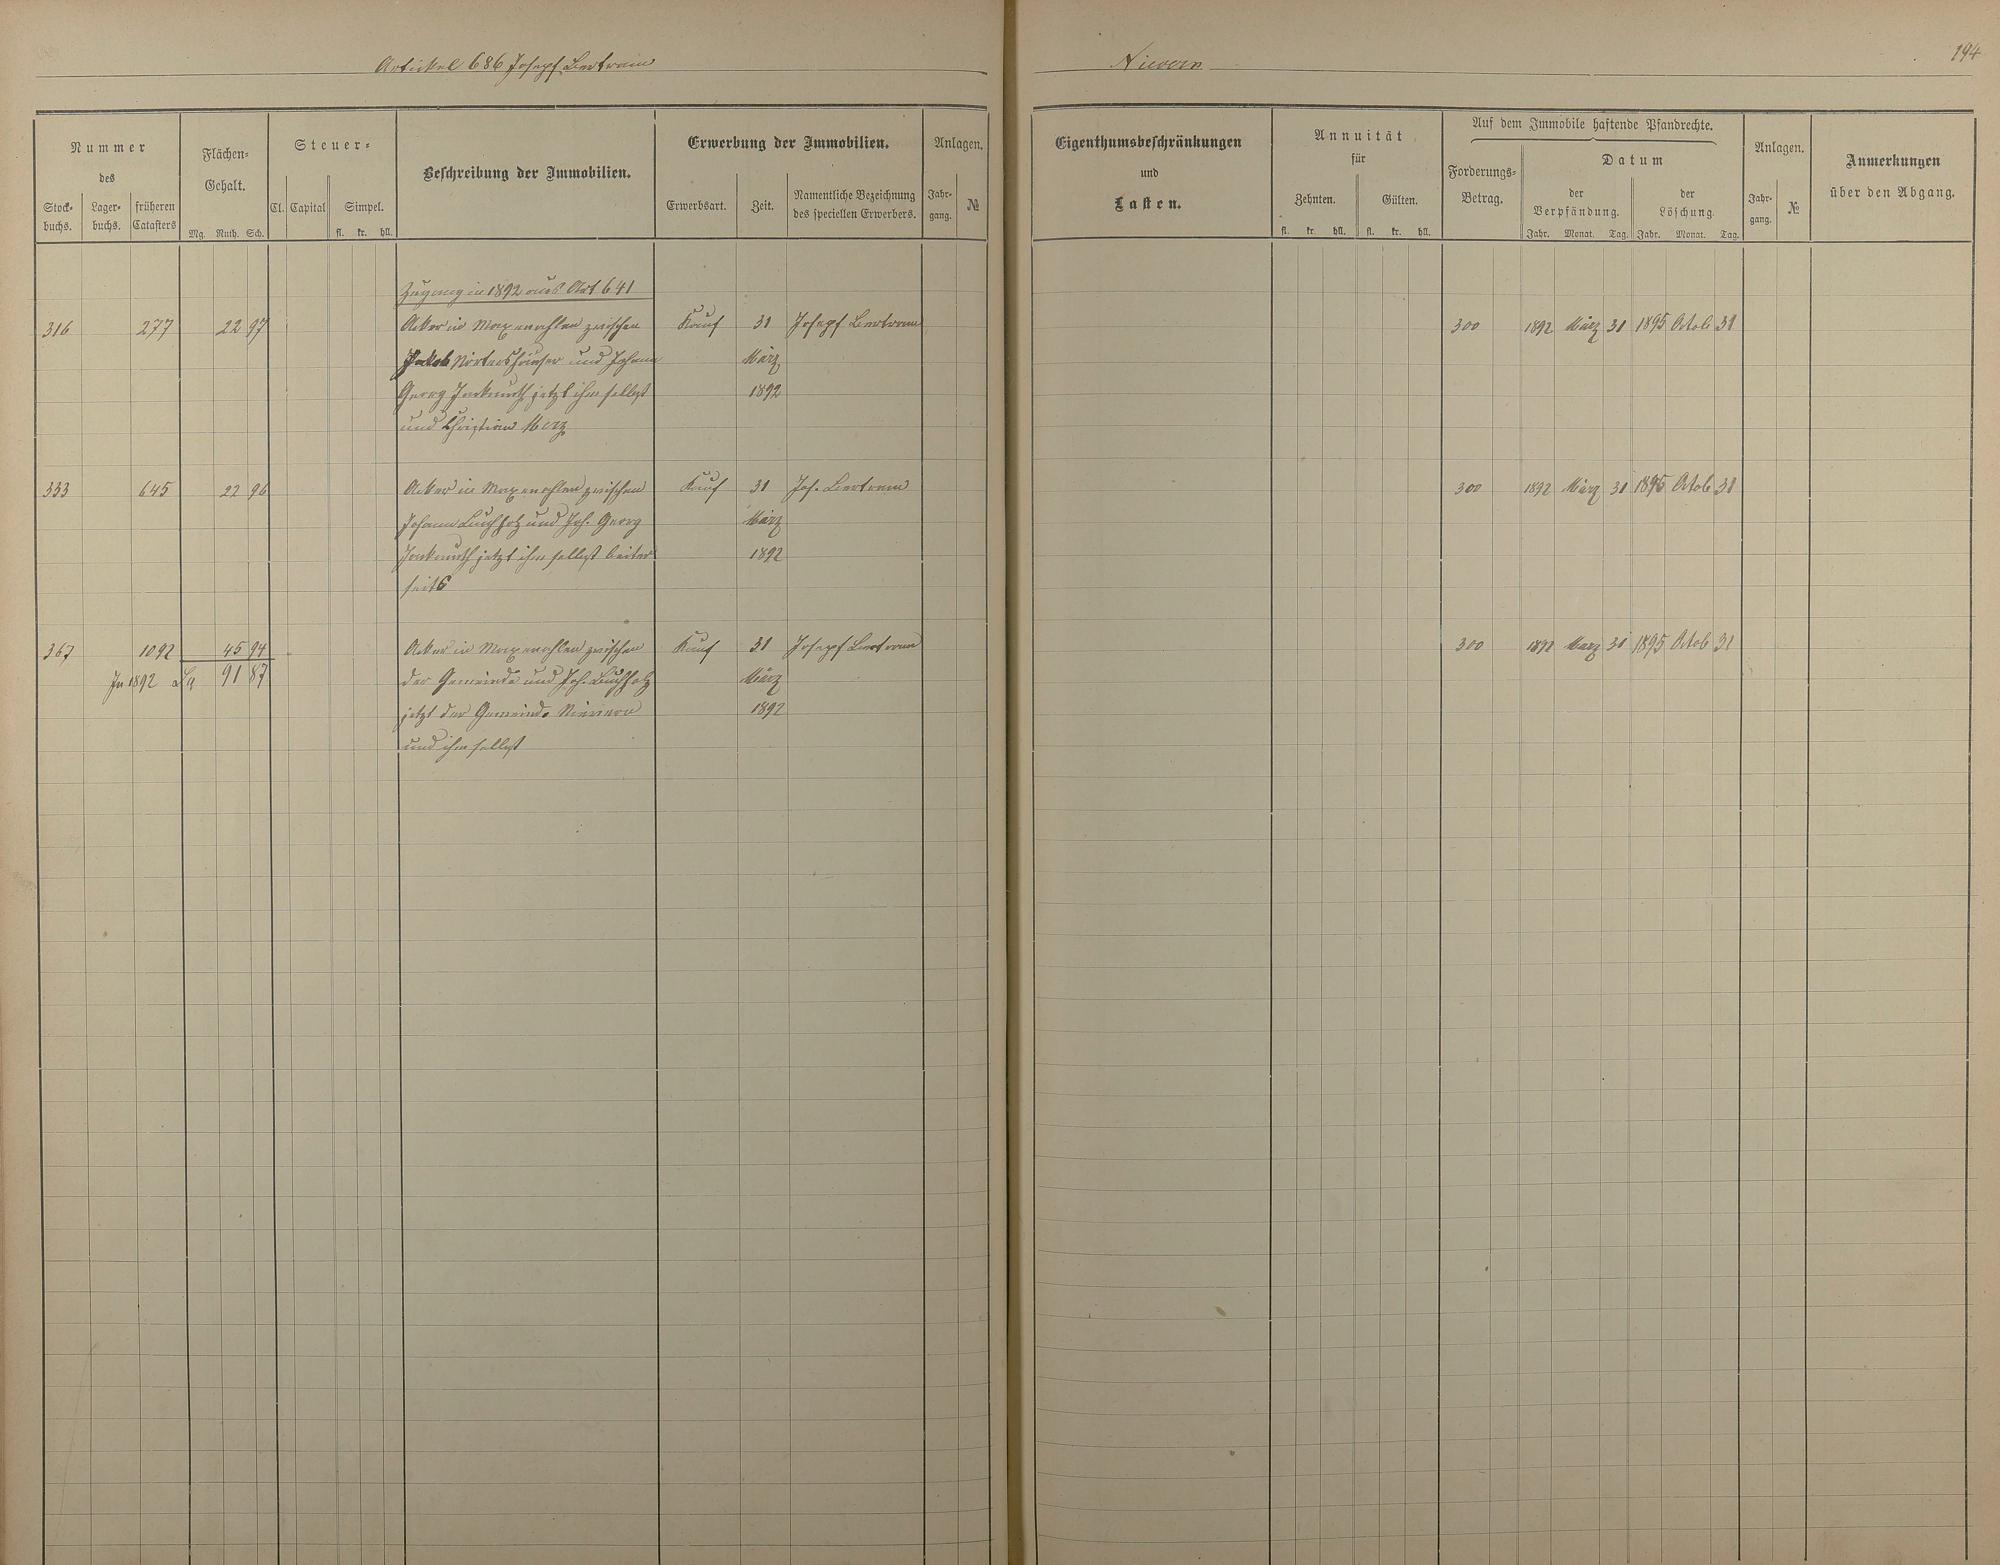 Artickel 686 Josepf Bertram
Nievern
194
Nummer
des
Stock-
buchs.
Lager-
buchs.
früheren
Catasters
Flächen-
Gehalt.
Mg. Ruth. Sch.
Steuer-
Cl. Capital Simpel.
fl. kr. hll.
Beschreibung der Immobilien.
Erwerbung der Immobilien.
Erwerbsart. Zeit.
Namentliche Bezeichnung
des speciellen Erwerbers.
Anlagen.
Jahr-
gang.
№
Eigenthumsbeschränkungen
und
Lasten.
Annuität
für
Zehnten. Gülten.
fl. kr. hll. fl. kr. hll.
Auf dem Immobile haftende Pfandrechte.
Forderungs-
Betrag.
Datum
der
Verpfändung.
der
Löschung.
Jahr. Monat. Tag. Jahr. Monat. Tag.
Anlagen.
Jahr-
gang.
№
Anmerkungen
über den Abgang.
Zugang in 1892 aus Art 641
316 277 22 97 Acker in zwischen Kauf 31 Josepf Bertram 300 1892 März 31 1895 Octob 31
Jakob Nörtershäuser und Johann März
Georg jetzt ihm selbst 1892
und Christian Merz
333 645 22 96 Acker in zwischen Kauf 31 Jos. Bertram 300 1892 März 31 1895 Octob 31
Johann Buchholz und Joh. Georg März
jetzt ihm selbst beider 1892
seits
367 1092 45 94 Acker in zwischen Kauf 31 Josepf Bertram 300 1892 März 31 1895 Octob 31
In 1892 Sa 91 87 der Gemeinde und Joh. Buchholz März
jetzt der Gemeinde Nievern 1892
und ihm selbst